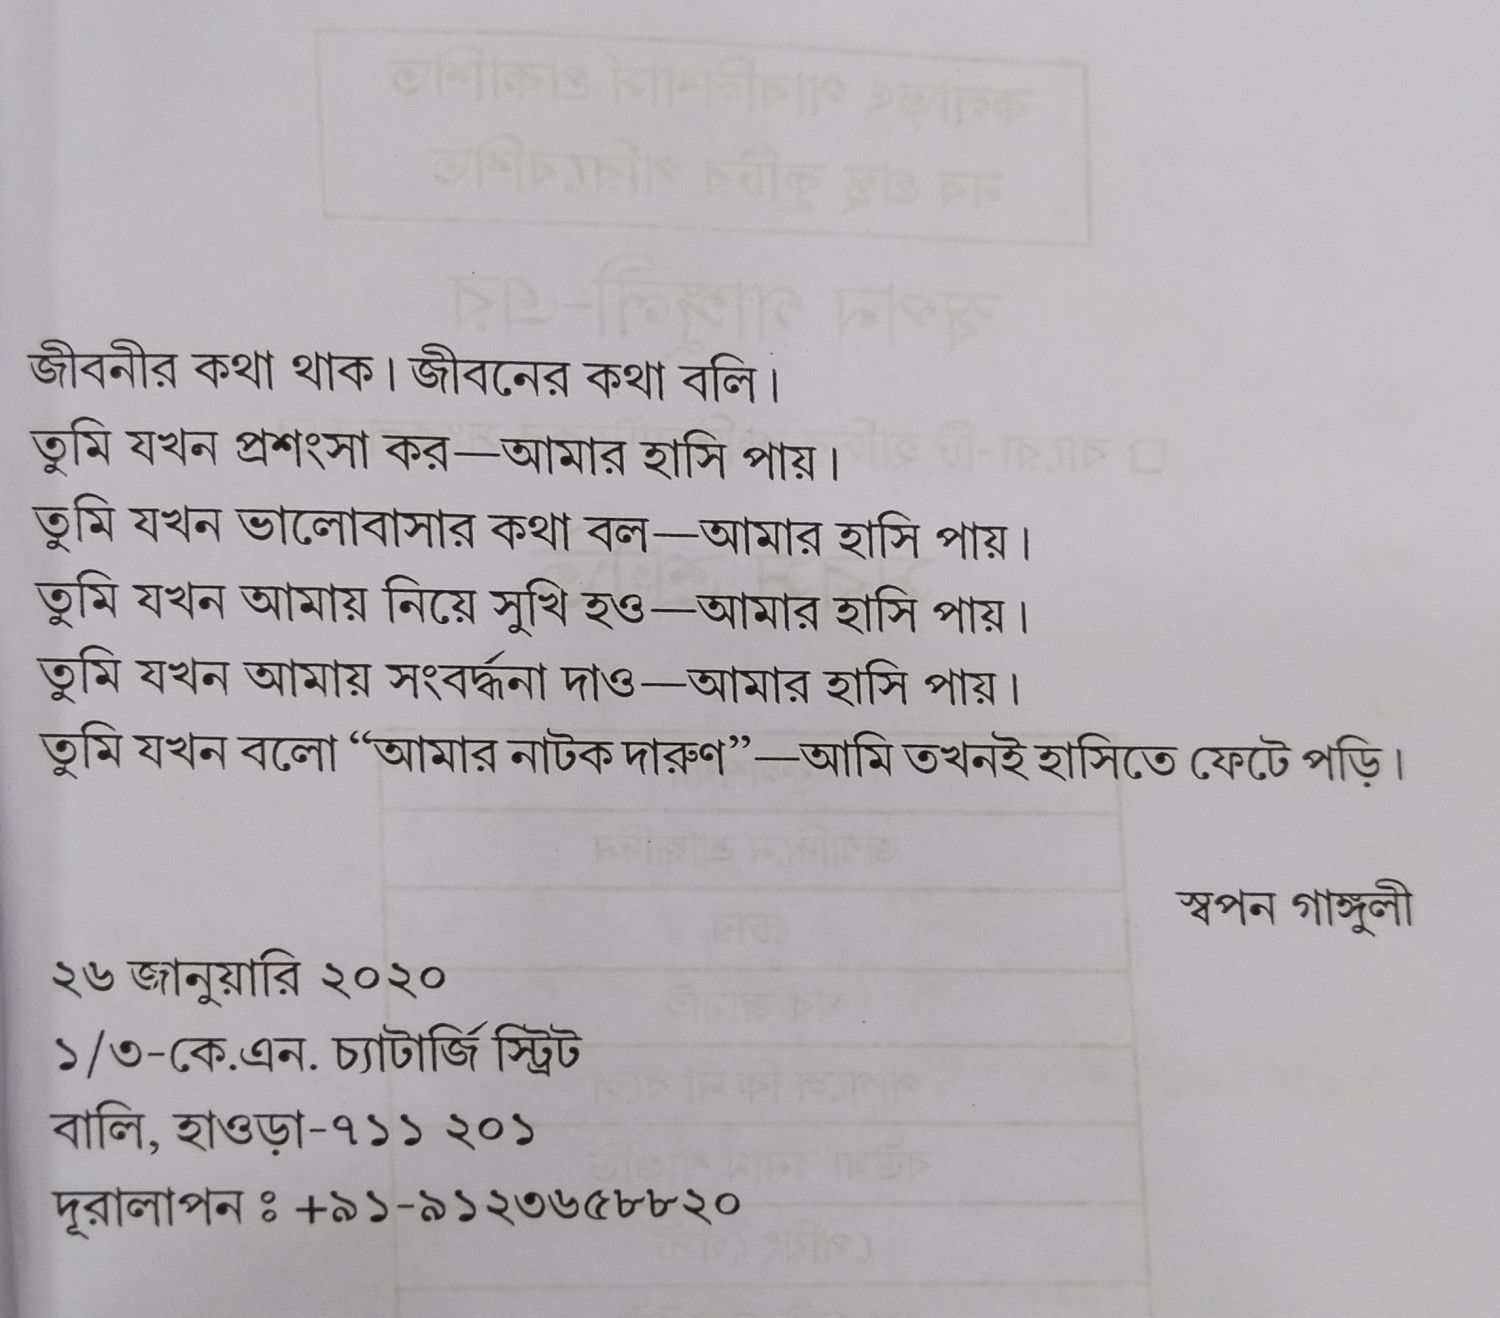 জীবনীর কথা থাক। জীবনের কথা বলি।
তুমি যখন প্রশংসা কর—আমার হাসি পায়।
তুমি যখন ভালোবাসার কথা বল—আমার হাসি পায়।
তুমি যখন আমায় নিয়ে সুখি হও—আমার হাসি পায়।
তুমি যখন আমায় সংবর্দ্ধনা দাও—আমার হাসি পায়।
তুমি যখন বলো “আমার নাটক দারুণ”—আমি তখনই হাসিতে ফেটে পড়ি।
স্বপন গাঙ্গুলী
২৬ জানুয়ারি ২০২০
১/৩-কে.এন. চ্যাটার্জি স্ট্রিট
বালি, হাওড়া-৭১১ ২০১
দূরালাপন ঃ +৯১-৯১২৩৬৫৮৮২০